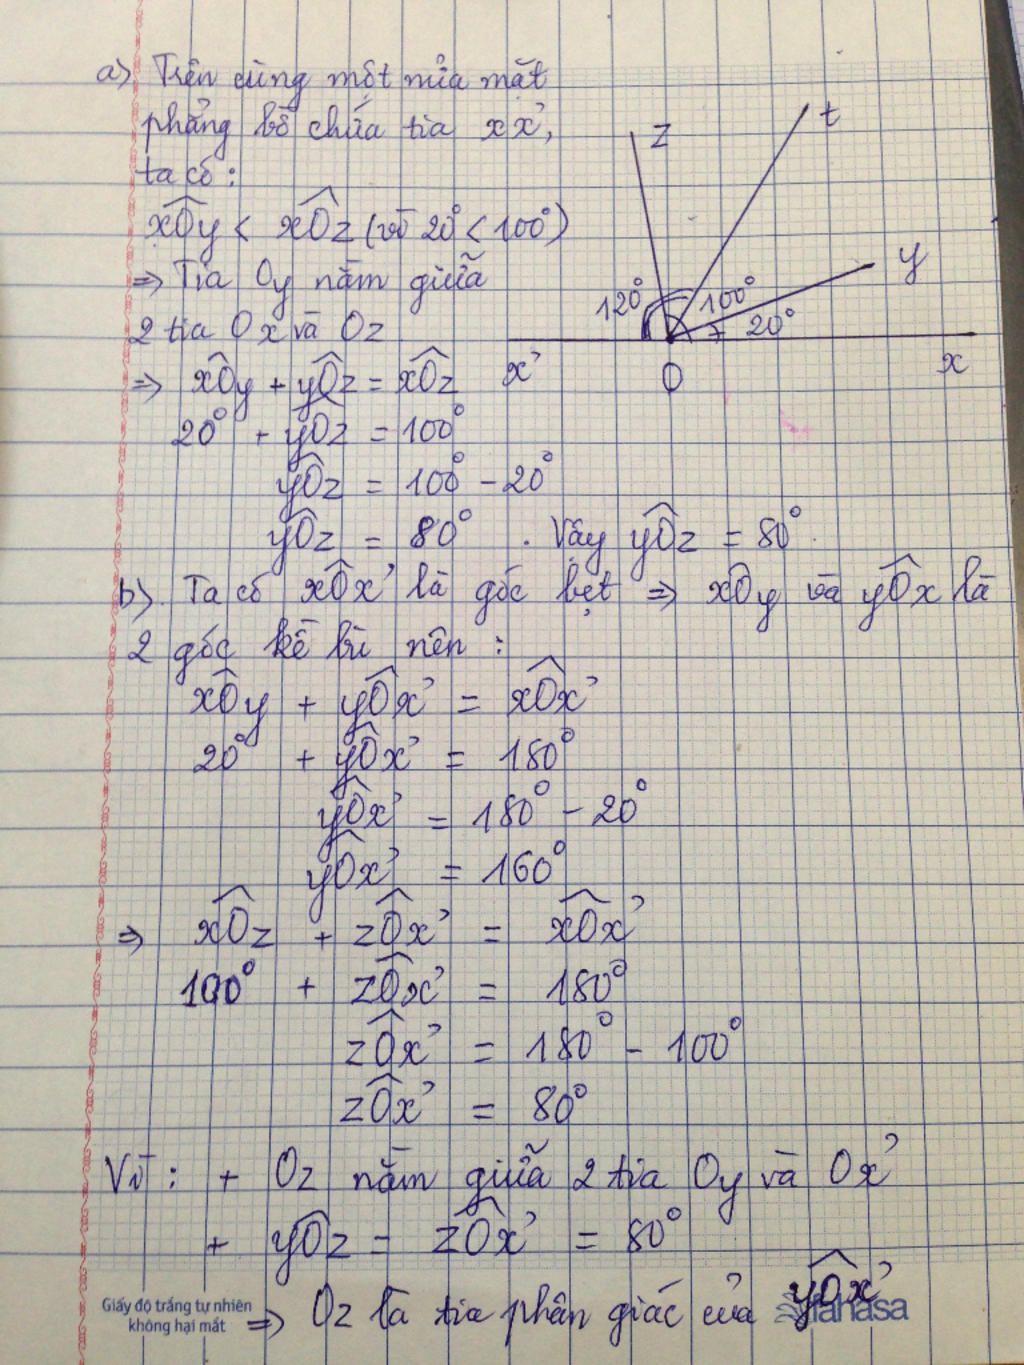 a) Trên cùng một nửa mặt
phẳng bờ chứa tia xx',
ta có:
xÔy < xÔz (vì 20° < 100°)
=> Tia Oy nằm giữa
2 tia Ox và Oz
=> xÔy + yÔz = xÔz
20° + yÔz = 100°
yÔz = 100° - 20°
yÔz = 80° . Vậy yÔz = 80°.
z
t
y
120°
100°
20°
x'
O
x
b) Ta có xÔx' là góc bẹt => xÔy và yÔx là
2 góc kề bù nên :
xÔy + yÔx' = xÔx'
20° + yÔx' = 180°
yÔx' = 180° - 20°
yÔx' = 160°
=> xÔz + zÔx' = xÔx'
100° + zÔx' = 180°
zÔx' = 180° - 100°
zÔx' = 80°
Vì : + Oz nằm giữa 2 tia Oy và Ox'
+ yÔz = zÔx' = 80°
=> Oz là tia phân giác của yÔx'
Giấy độ trắng tự nhiên
không hại mắt
fahasa